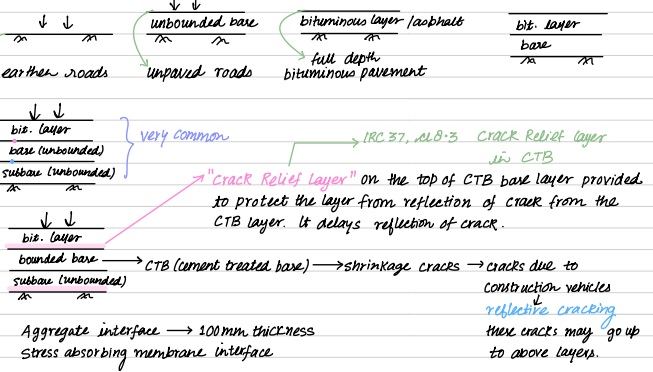 unbounded base
bituminous layer /asphalt
bit. layer
base
earthen roads
unpaved roads
full depth
bituminous pavement
bit. layer
base (unbounded)
subbase (unbounded)
very common
IRC 37, cl 8.3 Crack Relief layer
in CTB
"Crack Relief Layer" on the top of CTB base layer provided
to protect the layer from reflection of crack from the
CTB layer. It delays reflection of crack.
bit. layer
bounded base
subbase (unbounded)
CTB (cement treated base) → shrinkage cracks → cracks due to
construction vehicles
reflective cracking
these cracks may go up
to above layers.
Aggregate interface → 100mm thickness
Stress absorbing membrane interface